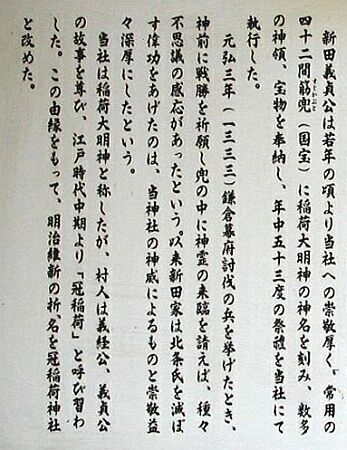 新田義貞公は若年の頃より当社への崇敬厚く、常用の
四十二間筋兜(国宝)に稲荷大明神の神名を刻み、数多
すじかぶと
の神領、宝物を奉納し、年中五十三度の祭禮を当社にて
執行した。
元弘三年(一三三三)鎌倉幕府討伐の兵を挙げたとき、
神前に戦勝を祈願し兜の中に神霊の来臨を請えば、種々
不思議の感応があったという。以来新田家は北条氏を滅ぼ
す偉功をあげたのは、当神社の神威によるものと崇敬益
々深厚にしたという。
当社は稲荷大明神と称したが、村人は義経公、義貞公
の故事を尊び、江戸時代中期より「冠稲荷」と呼び習わ
した。この由縁をもって、明治維新の折、名を冠稲荷神社
と改めた。